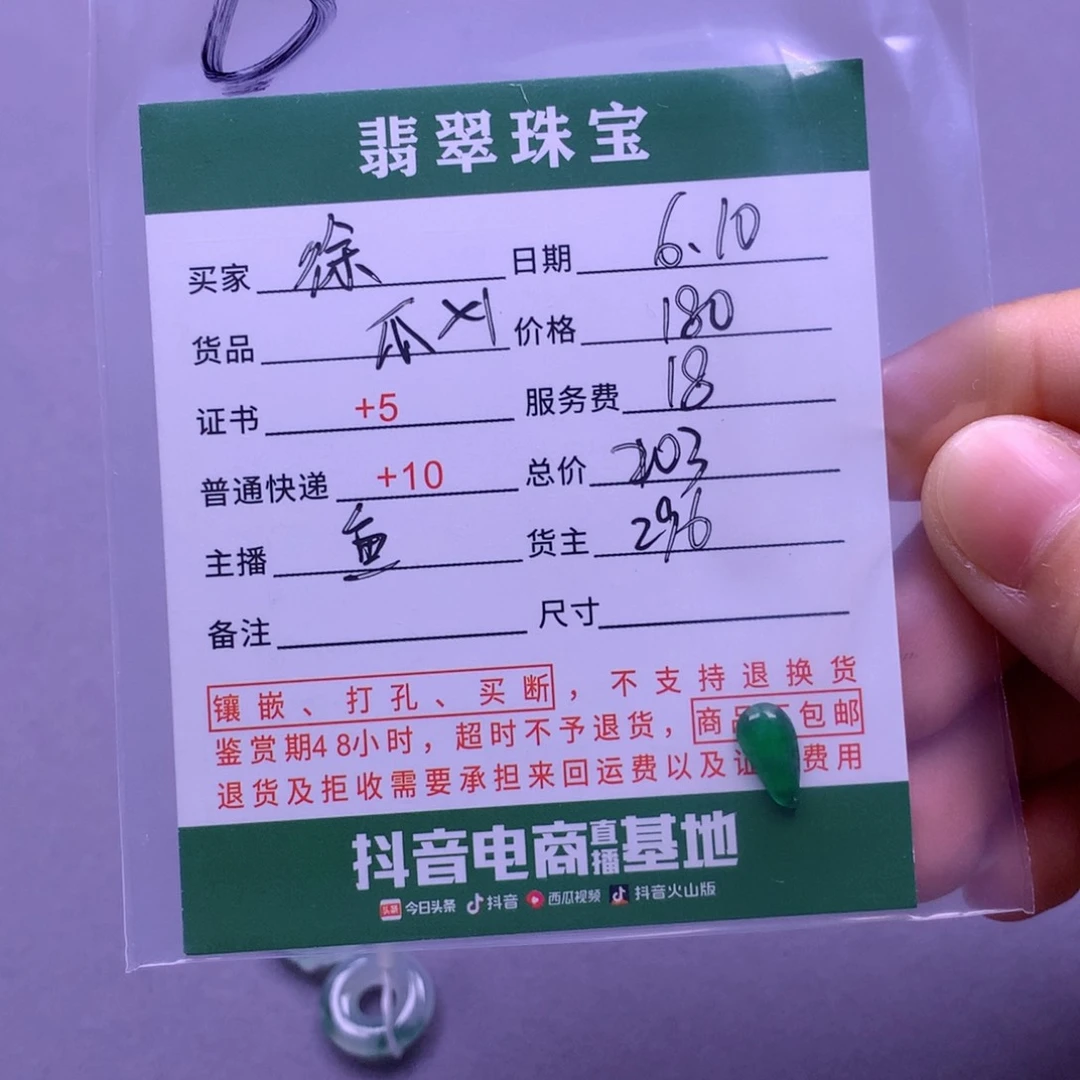 翡翠珠宝
买家 徐 日期 6.10
货品 瓜×1 价格 180
证书 +5 服务费 18
普通快递 +10 总价 203
主播 鱼 货主 296
备注 尺寸
镶嵌、打孔、买断，不支持退换货
鉴赏期48小时，超时不予退货，商品 包邮
退货及拒收需要承担来回运费以及证 费用
抖音电商直播基地
头条 今日头条 抖音 西瓜视频 抖音火山版